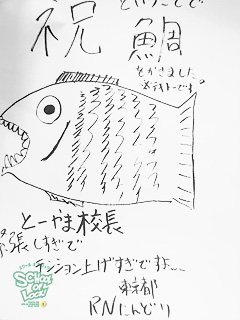 ということで
祝 鯛
をかきました。
とーやま校長
張しすぎで
テンション上げすぎですよ…
東京都
RNにんどり
SCHOOL OF LOCK!